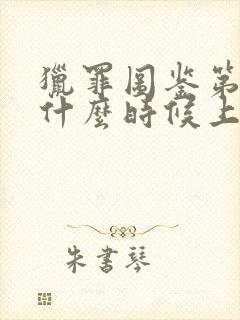 獵罪圖鉴第
什麼時候上
朱書琴